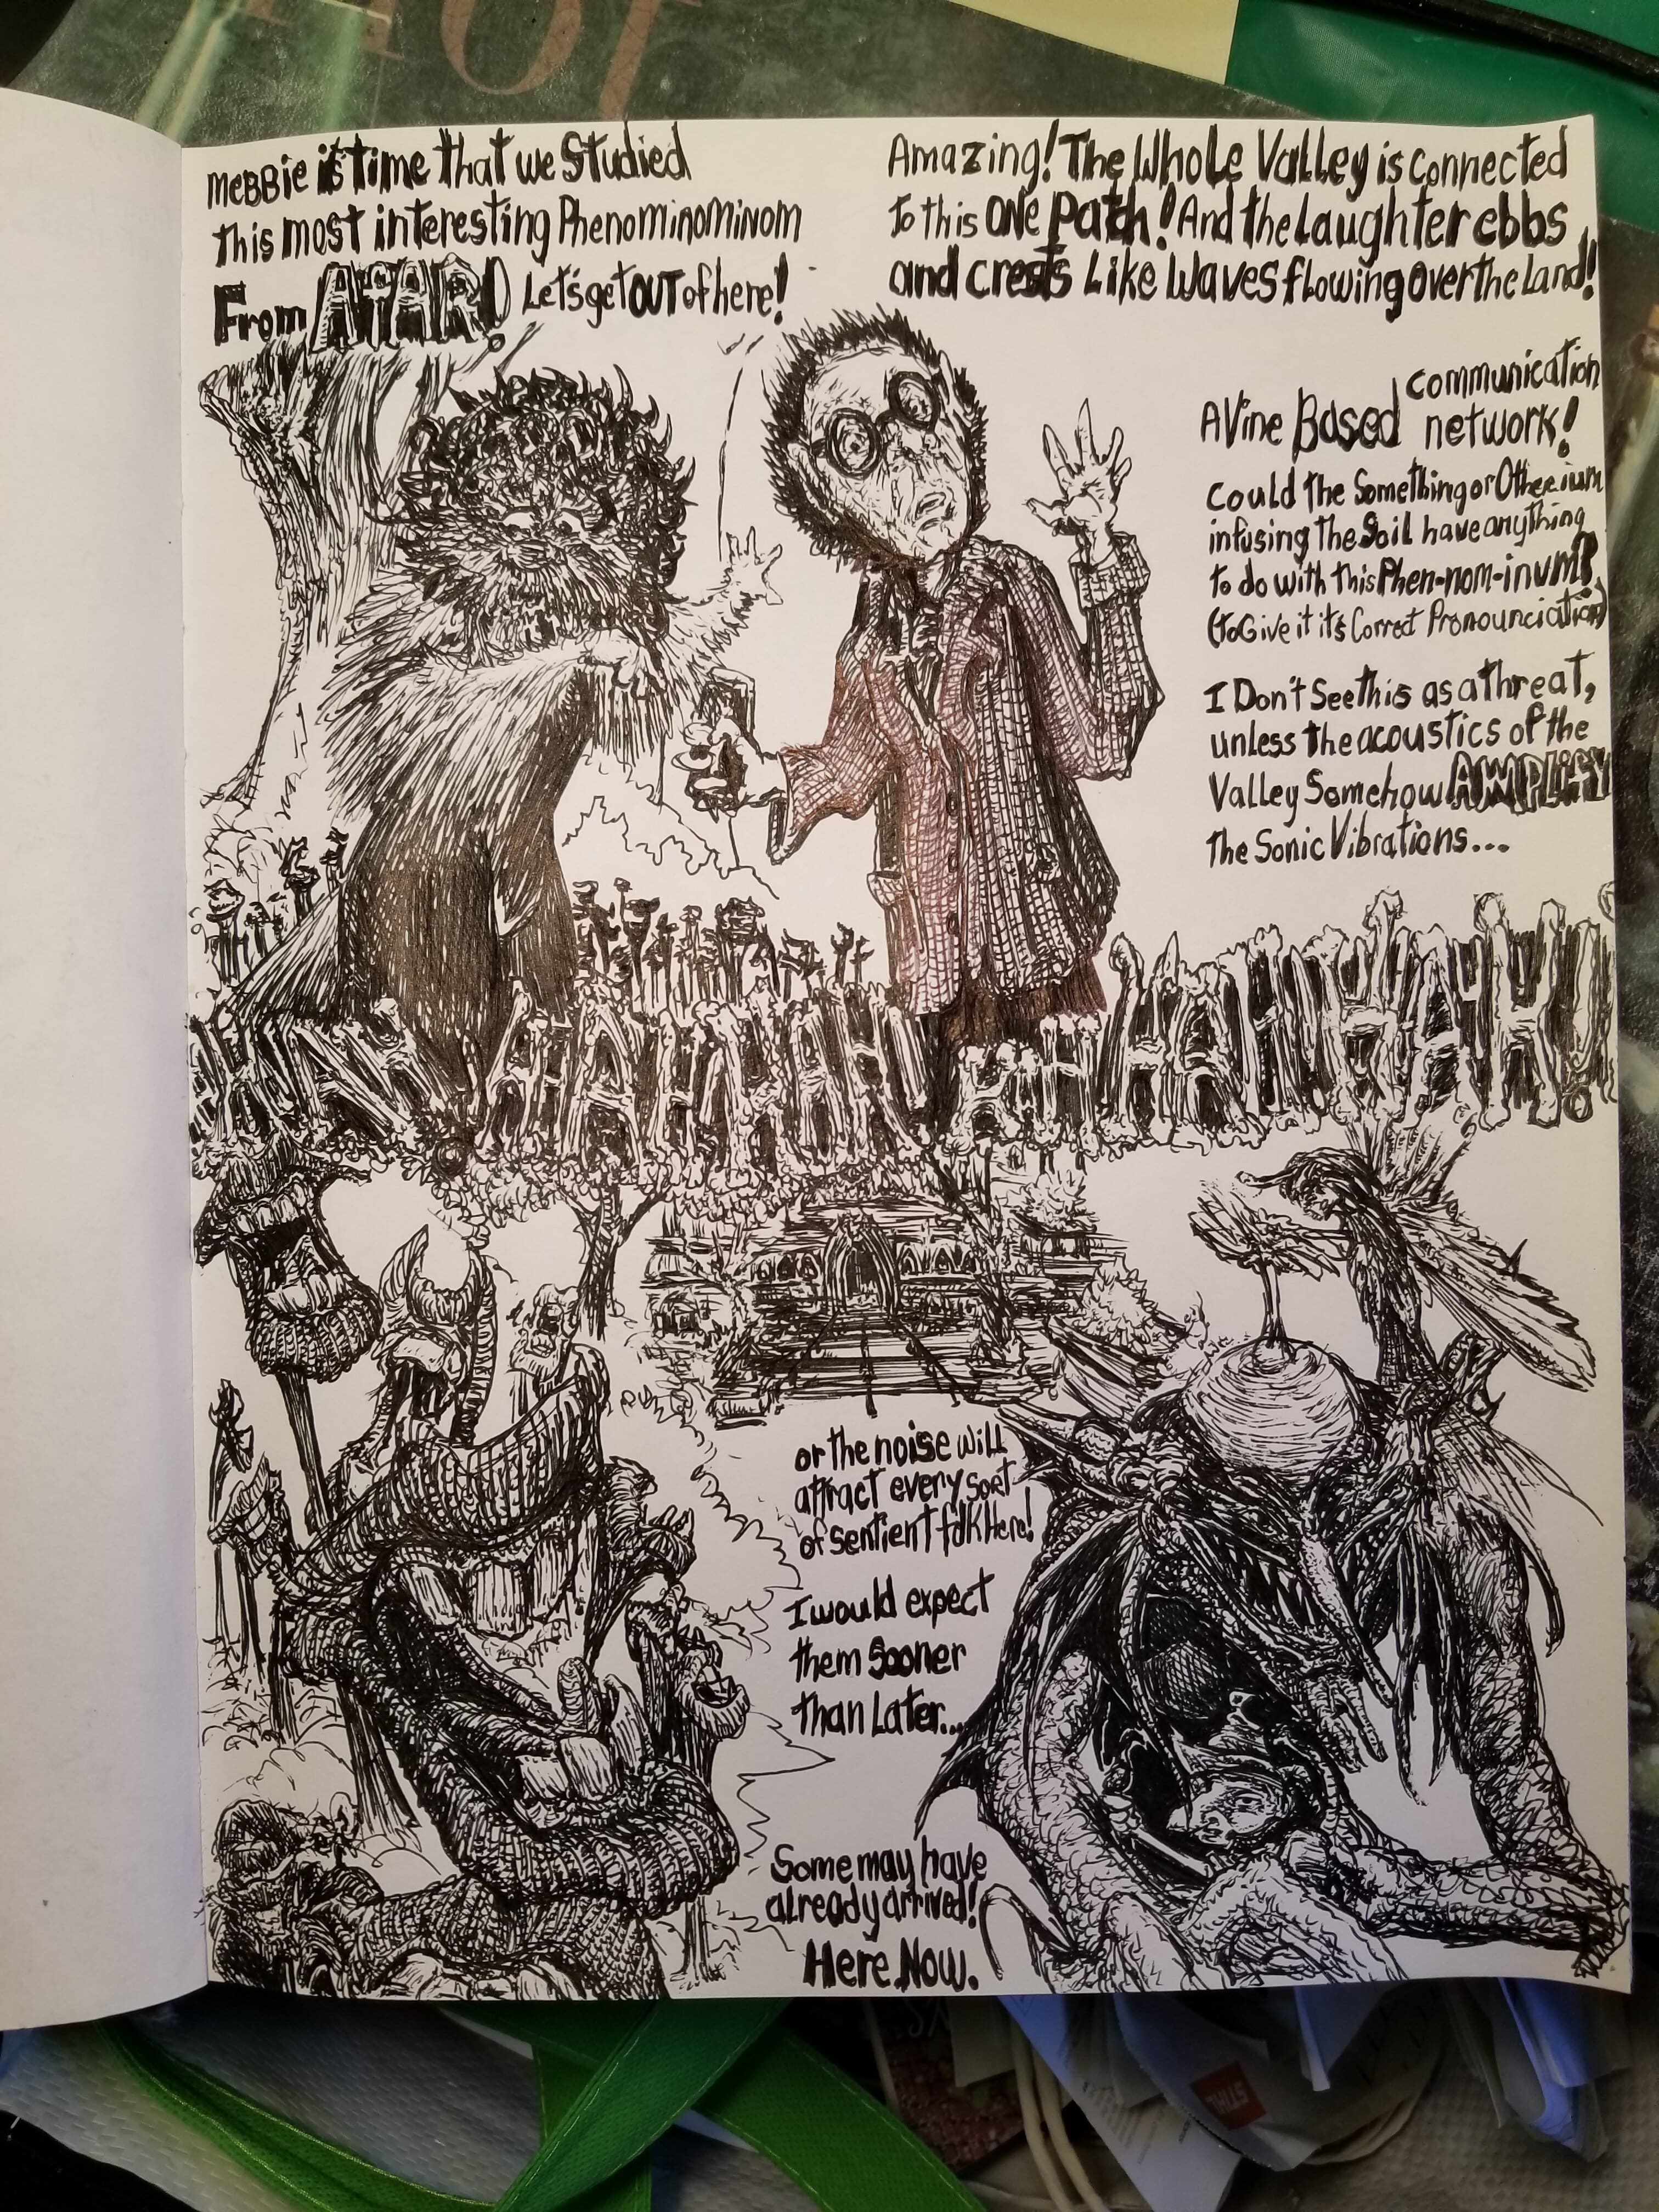 meBBie it's time that we Studied
this most interesting PhenominominoM
From AFAR! Let's get OUT of here!
Amazing! The Whole Valley is connected
to this ONe Path! And the Laughter ebbs
and crests Like Waves flowing over the Land!
A Vine Based communication
network!
Could the SomethingorOtherium
infusing the Soil have anything
to do with this Phen-nom-inum?
(to Give it it's Correct Pronounciation)
I Don't See this as a threat,
unless the acoustics of the
Valley Somehow AMPLiFY
the Sonic Vibrations...
HAHAHAHAHAHAHAHAH!
or the noise will
attract every sort
of sentient folk Here!
I would expect
them sooner
than Later...
Some may have
already arrived!
Here. Now.
STIHL